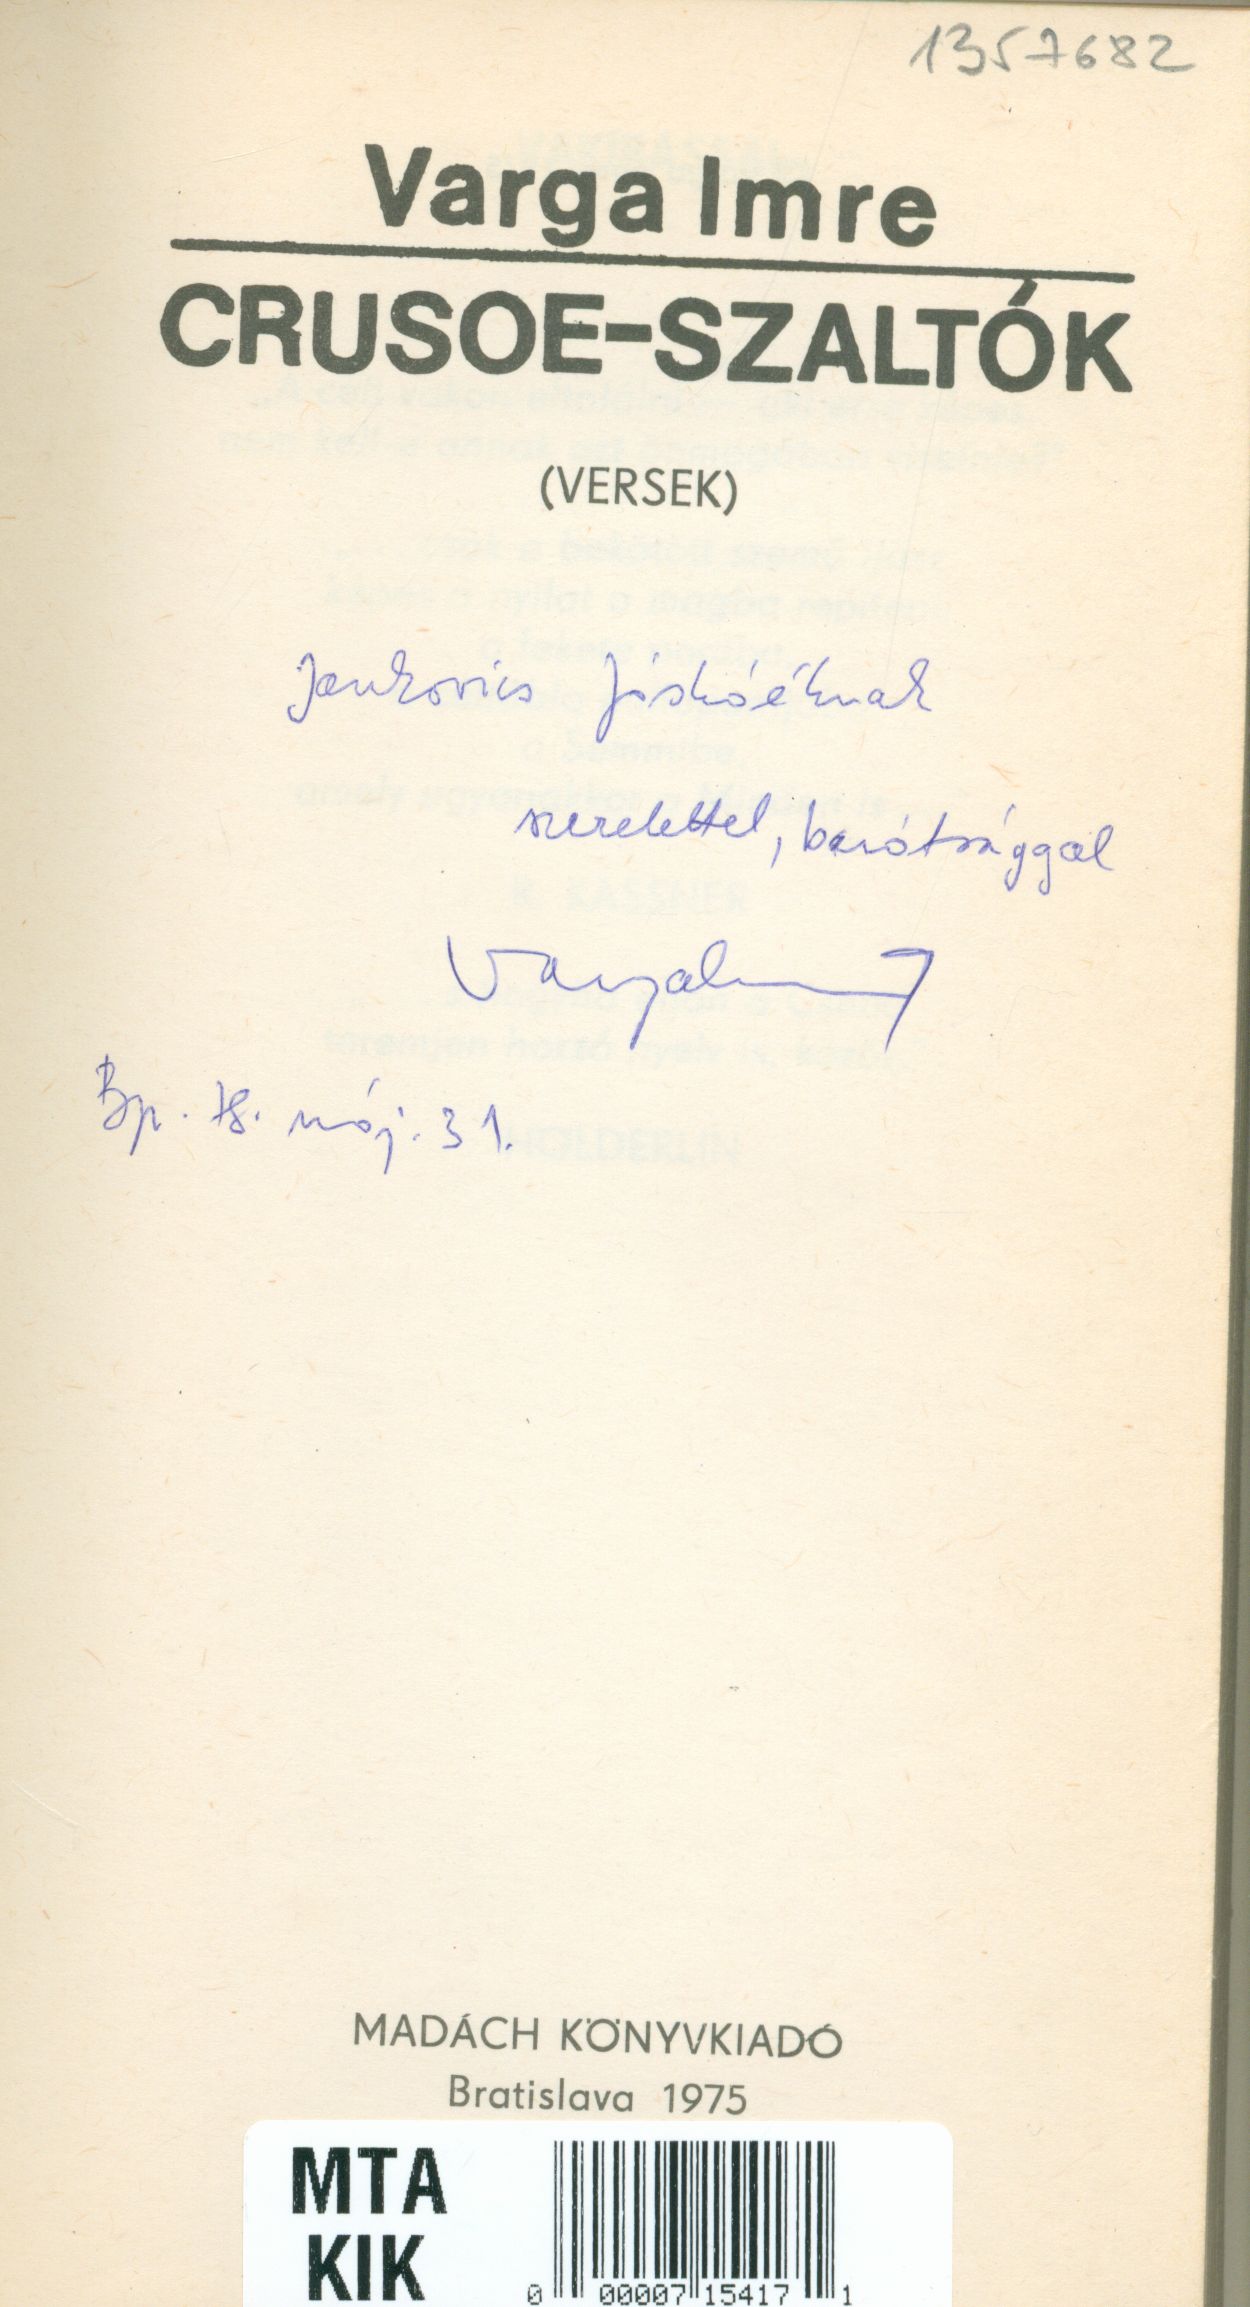 1357682
Varga Imre
CRUSOE-SZALTÓK
(VERSEK)
Jankovics Jóskáéknak
szeretettel, barátsággal
Varga Imre
Bp. 78. máj. 31.
R. KASSNER
HÖLDERLIN
MADÁCH KÖNYVKIADÓ
Bratislava 1975
MTA
KIK
0 00007 15417 1